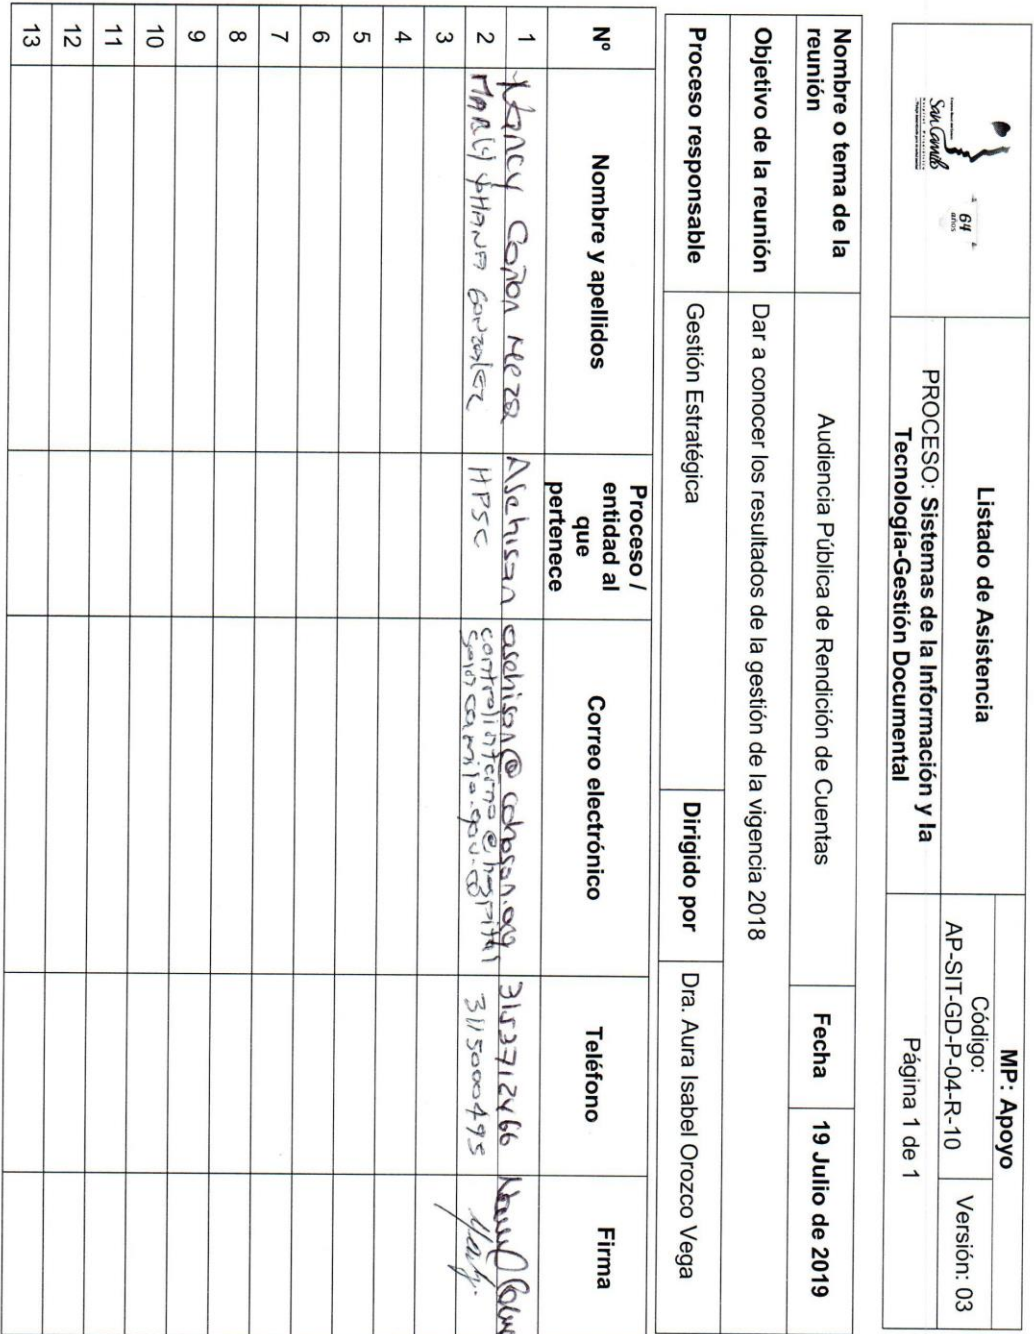 San Camilo
64
años
Listado de Asistencia
PROCESO: Sistemas de la Información y la
Tecnología-Gestión Documental
MP: Apoyo
Código:
AP-SIT-GD-P-04-R-10
Versión: 03
Página 1 de 1
Nombre o tema de la
reunión
Audiencia Pública de Rendición de Cuentas
Fecha
19 Julio de 2019
Objetivo de la reunión
Dar a conocer los resultados de la gestión de la vigencia 2018
Proceso responsable
Gestión Estratégica
Dirigido por
Dra. Aura Isabel Orozco Vega
Nº
Nombre y apellidos
Proceso /
entidad al
que
pertenece
Correo electrónico
Teléfono
Firma
1
Nancy Cañon Meza
Asehisan
asehisan@cohosan.org
3153712466
2
MARLY YOHANA GONZALEZ
HPSC
controlinterno@hospital
sancamilo.gov.co
3115000495
Marly.
3
4
5
6
7
8
9
10
11
12
13